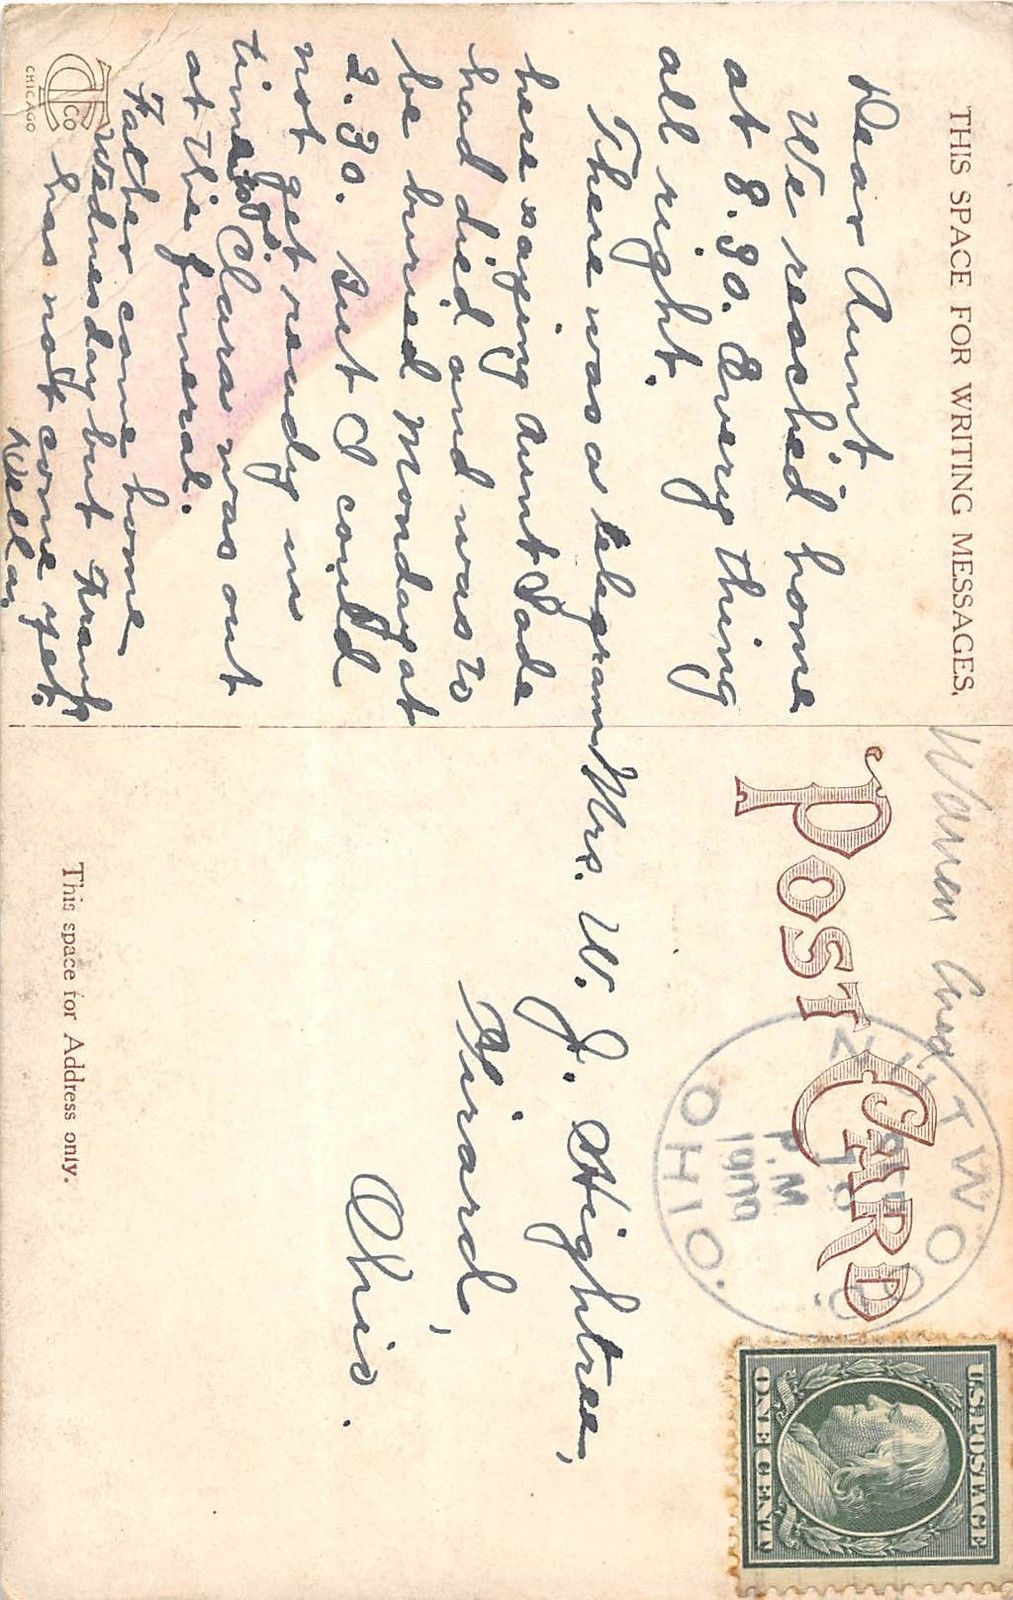 THIS SPACE FOR WRITING MESSAGES.
Dear Aunt
We reached home
at 8.30. Every thing
all right.
There was a telegram
here saying Aunt Sade
had died and was to
be buried Monday at
2.30. but I could
not get ready in
time to go.
Clara was out
at the funeral.
Father came home
Wednesday but Frank
has not come yet.
CTCO
CHICAGO
Warren Ave
POST CARD
OHIO.
P.M
U.S. POSTAGE
ONE CENT
Mrs. W. J. Hightree,
Girard,
Ohio.
This space for Address only.